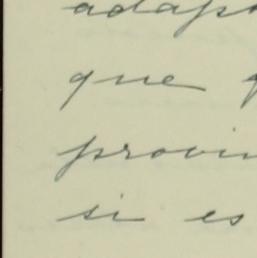 adap
que
provin
si es